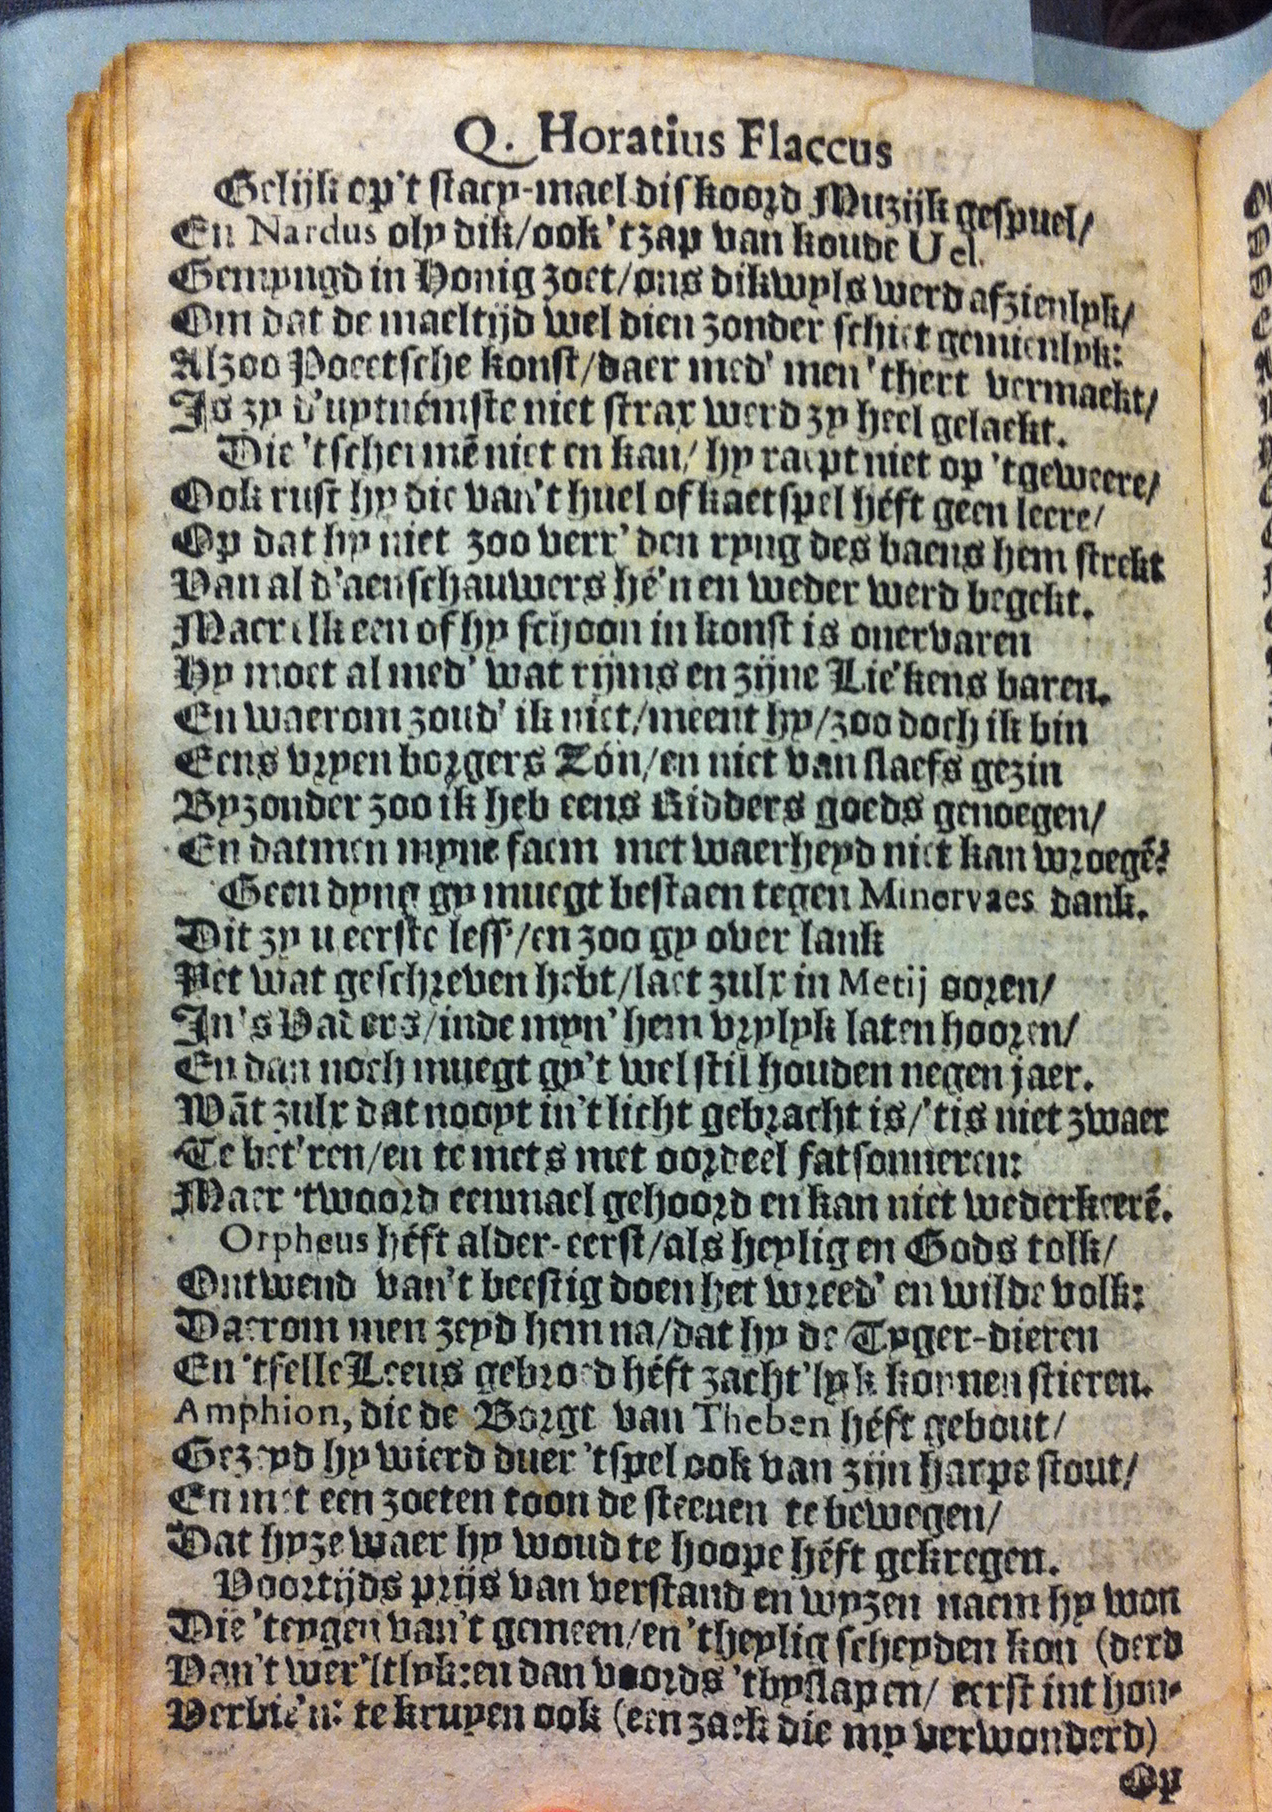 Q. Horatius Flaccus
Gelijk op't staey-mael diskoord Muzijk gespuel/
En Nardus oly dik/ook 'tzap van koude Uel.
Gemyngd in Honig zoet/ons dikwyls werd afzienlyk/
Om dat de maeltijd wel dien zonder schiet gemienlyk:
Alzoo Poeetsche konst/daer med' men 'thert vermaekt/
Is zy d'uytnémste niet strax werd zy heel gelaekt.
Die 'tschermē niet en kan/ hy raept niet op 'tgeweere/
Ook rust hy die van't huel of kaetspel héft geen leere/
Op dat hy niet zoo verr' den ryng des baens hem strekt
Van al d'aenschauwers hé'n en weder werd begekt.
Maer elk een of hy schoon in konst is onervaren
Hy moet al med' wat rijms en zijne Lie'kens baren.
En waerom zoud' ik niet/meent hy/zoo doch ik bin
Eens vryen borgers Zón/en niet van slaefs gezin
Byzonder zoo ik heb eens Ridders goeds genoegen/
En datmen myne faem met waerheyd niet kan wroegē?
Geen dyng gy muegt bestaen tegen Minervaes dank.
Dit zy u eerste less'/en zoo gy over lank
Yet wat geschreven hebt/laet zulx in Metij ooren/
In 's Vaders/inde myn' hem vrylyk laten hooren/
En dan noch muegt gy't wel stil houden negen jaer.
Wāt zulx dat nooyt in't licht gebracht is/'tis niet zwaer
Te bet'ren/en temets met oordeel fatsonneren:
Maer 'twoord eenmael gehoord en kan niet wederkeerē.
Orpheus héft alder-eerst/als heylig en Gods tolk/
Ontwend van't beestig doen het wreed' en wilde volk:
Daerom men zeyd hem na/dat hy de Tyger-dieren
En 'tfelle Leeus gebroed héft zacht'lyk konnen stieren.
Amphion, die de Borgt van Theben héft gebout/
Gezeyd hy wierd duer 'tspel ook van zijn harpe stout/
En met een zoeten toon de steenen te bewegen/
Dat hyze waer hy woud te hoope héft gekregen.
Voortijds prijs van verstand en wyzen naem hy won
Die 'teygen van't gemeen/en 'theylig scheyden kon (derd
Van't wer'ltlyk:en dan voords 'tbyslapen/ eerst int hon-
Verbie'n: te kruyen ook (een zaek die my verwonderd)
Op